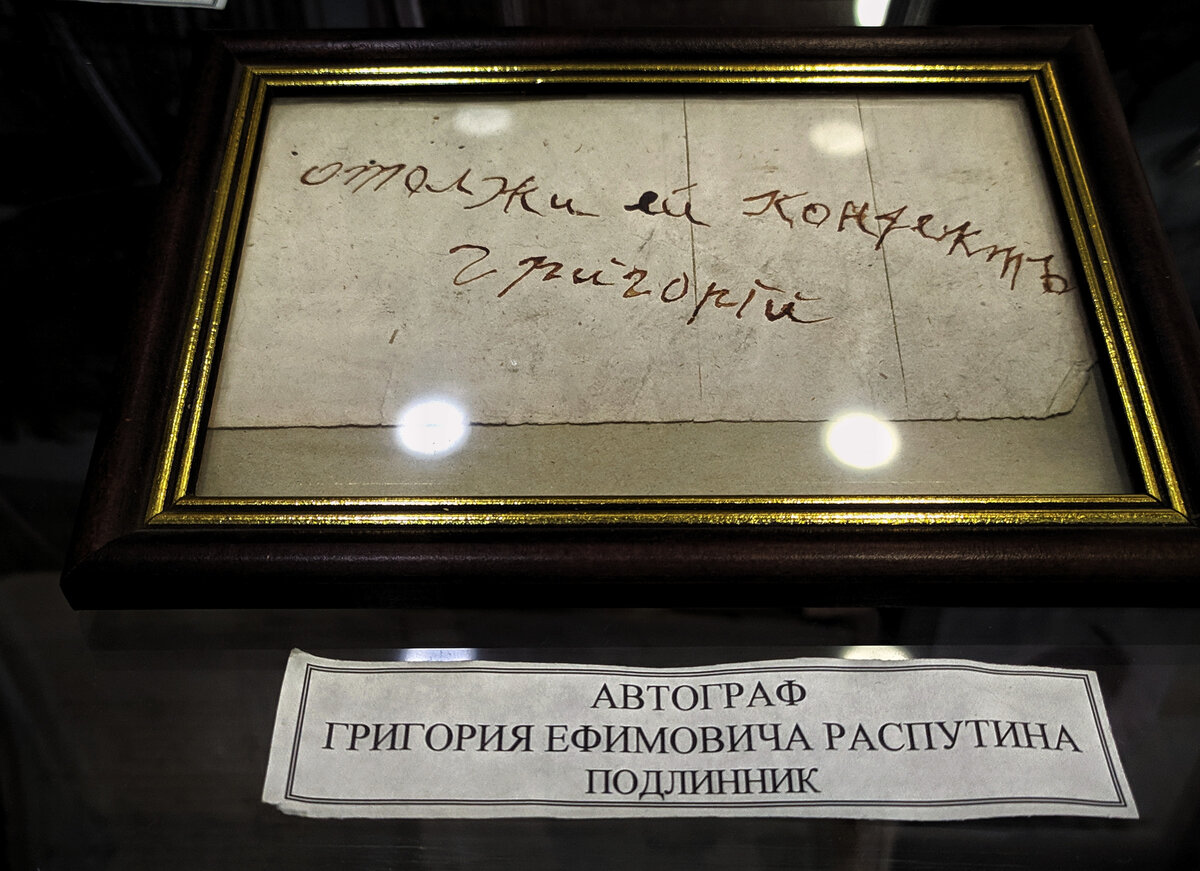 отолжи ей конфектъ
григорій
АВТОГРАФ
ГРИГОРИЯ ЕФИМОВИЧА РАСПУТИНА
ПОДЛИННИК